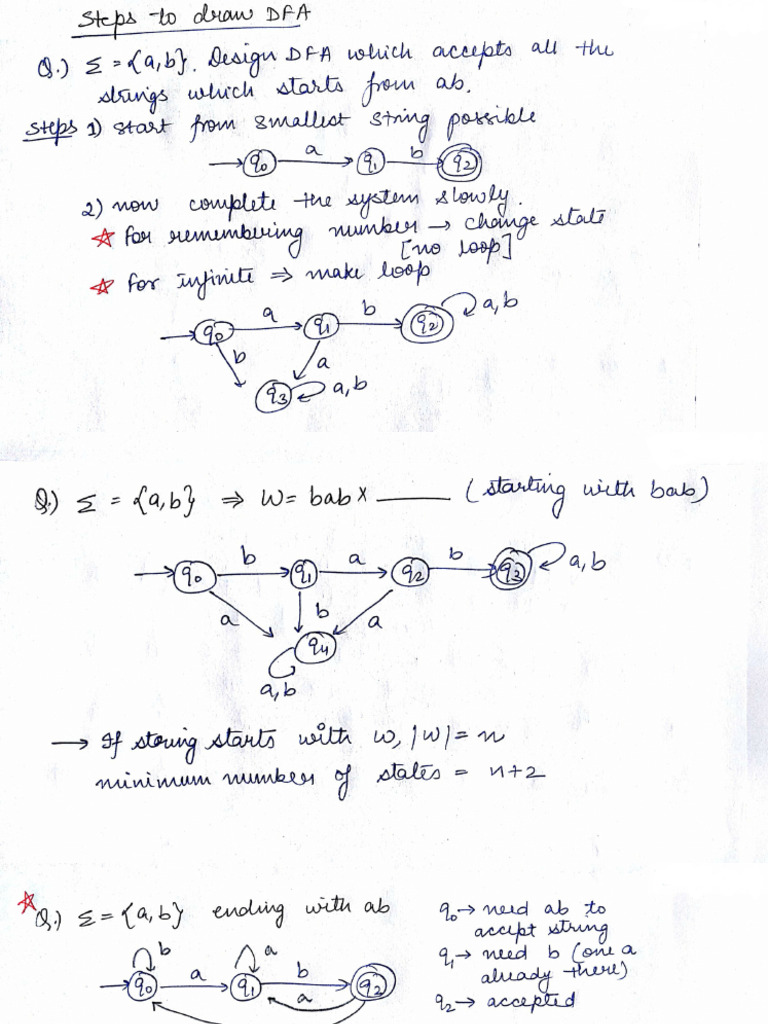 Steps to draw DFA
Q.) Σ = {a,b}. Design DFA which accepts all the
strings which starts from ab.
Steps 1) start from smallest string possible
q0 a q1 b q2
2) now complete the system slowly.
☆ for remembering number → change state
[no loop]
☆ for infinite ⇒ make loop
q0 a q1 b q2 a,b
b a
q3 a,b
Q.) Σ = {a,b} ⇒ W = bab x ______ (starting with bab)
q0 b q1 a q2 b q3 a,b
a b a
q4
a,b
→ If string starts with w, |w| = n
minimum number of states = n+2
☆ Q.) Σ = {a,b} ending with ab
b a
q0 a q1 b q2
a
q0 → need ab to
accept string
q1 → need b (one a
already there)
q2 → accepted